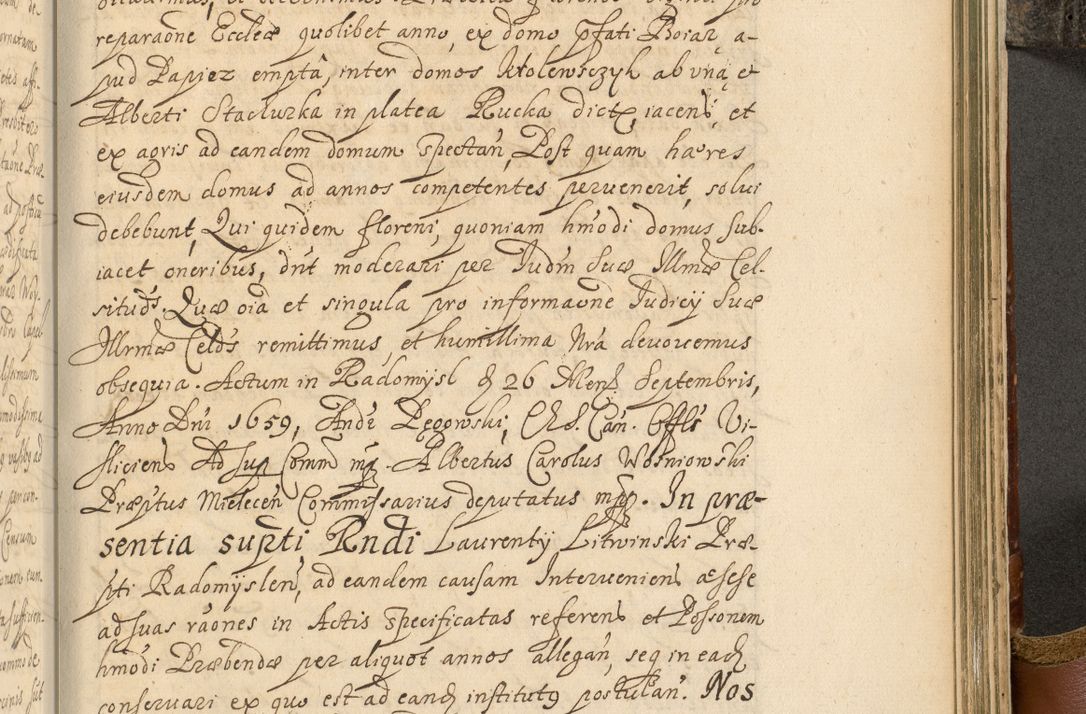 reparaone Eccleæ quolibet anno, ex domo pfati Boiar, a-
pud Papiez emptâ, inter domos Krolewsczyk ab una et
Alberti Stachurka in platea Rucka dicta, iacens, et
ex agris ad eandem domum spectan, Post quam hæres
eiusdem domus ad annos competentes pervenerit, solui
debebunt, Qui quidem floreni, quoniam hmodi domus sub-
iacet oneribus, dnt moderari per Iudm Suæ Illmæ Cel-
situds. Quæ oia et singula pro informaone Iudicij Suæ
Illrmæ Celds remittimus, et humillima Nra devovemus
obsequia. Actum in Radomysl d 26 Mens Septembris,
Anno Dni 1659, Andr Pęgowski, Can. Offls Vi-
sliciens Ad sup Comm mp. Albertus Carolus Wosniowski
Præptus Mielecen Commissarius deputatus mpp. In præ-
sentia supti Rndi Laurentij Litwinski Præ-
pti Radomyslen, ad eandem causam Intervenien a sese
ad suas raones in Actis specificatas referens et Possonem
hmodi Præbendæ per aliquot annos allegan, seq in ead
conservari ex quo est ad eand institutq postulan. Nos